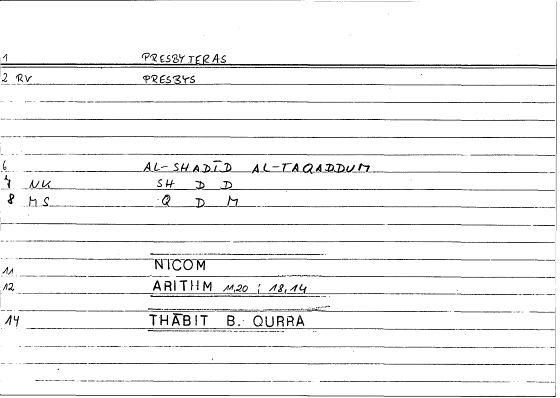 1 PRESBYTERAS
2 RV PRESBYS
6 AL-SHADĪD AL-TAQADDUM
7 NK SH D D
8 MS Q D M
11 NICOM
12 ARITHM 11,20 ; 18,14
14 THĀBIT B. QURRA